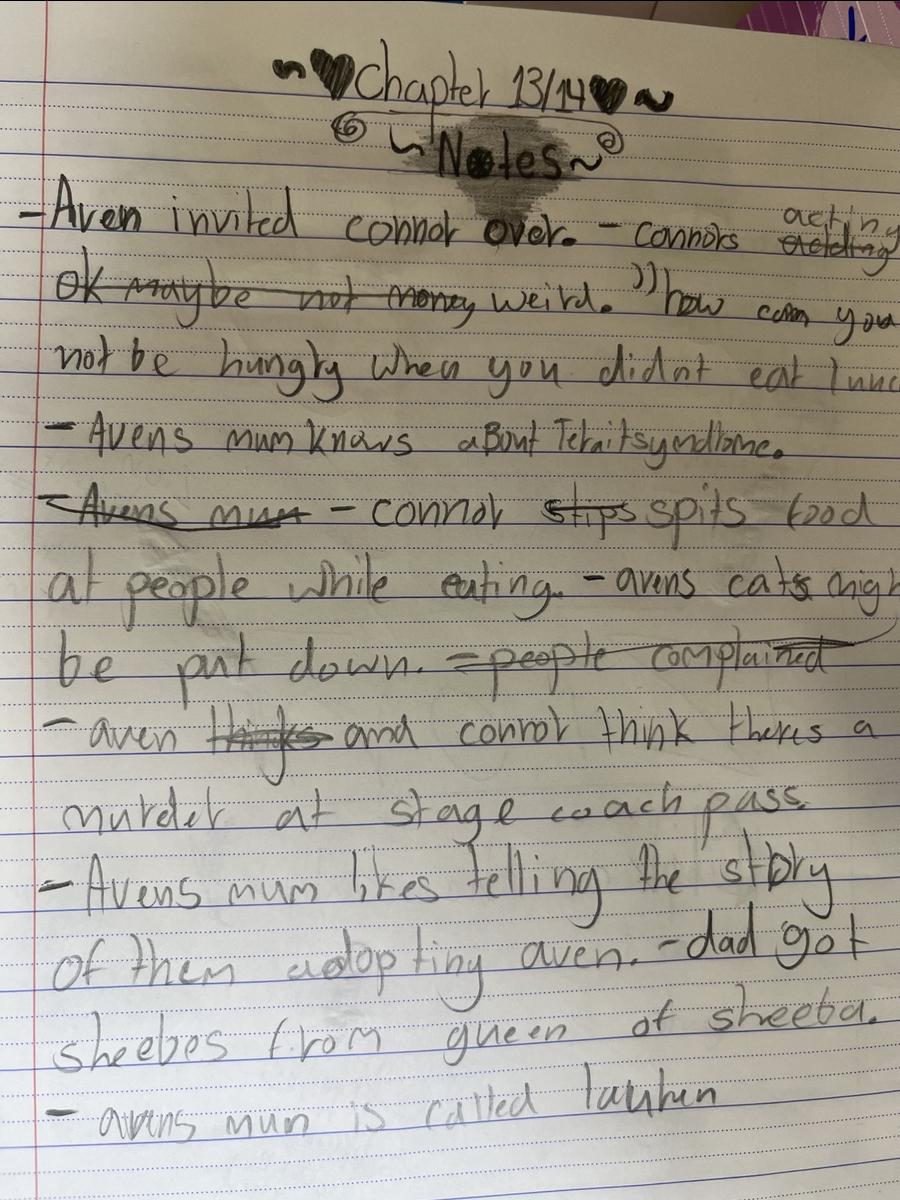 Chapter 13/14
Notes
- Aven invited connor over. - connors acting adding
ok maybe not money weird. "how can you
not be hungry when you didnt eat lunc
- Avens mum knows aBout Teraitsyndrome.
- Avens mum - connor stips spits food
at people while eating. - avens cats migh
be put down. - people complained
- aven thinks and connor think theres a
murder at stage coach pass.
- Avens mum likes telling the story
of them adopting aven. - dad got
sheebes from queen of sheeba.
- avens mum is called